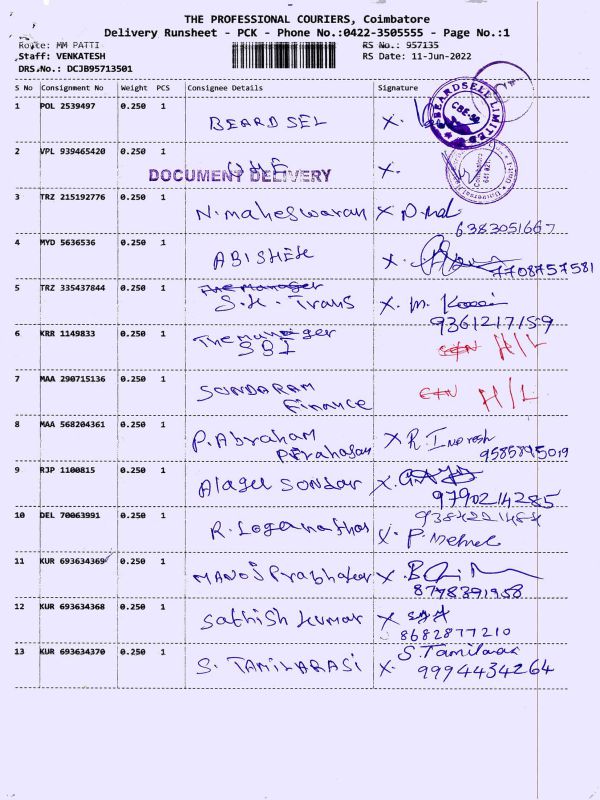 THE PROFESSIONAL COURIERS, Coimbatore
Delivery Runsheet - PCK - Phone No.:0422-3505555 - Page No.:1
Route: MM PATTI RS No.: 957135
Staff: VENKATESH RS Date: 11-Jun-2022
DRS.No.: DCJB95713501
S No Consignment No Weight PCS Consignee Details Signature
1 POL 2539497 0.250 1 BEARDSEL X.
BEARDSELL LIMITED CBE-50
2 VPL 939465420 0.250 1 X.
DOCUMENT DELIVERY
Coimbatore 641 021
3 TRZ 215192776 0.250 1 N. maheswaran X
6383051667
4 MYD 5636536 0.250 1 ABISHEK X.
7708757581
5 TRZ 335437844 0.250 1 The Manager
S.K. Trans X. M.
9361217159
6 KRR 1149833 0.250 1 The Manager
SBI H/L
7 MAA 290715136 0.250 1 SUNDARAM
Finance H/L
8 MAA 568204361 0.250 1 P. Abraham X R.
9585895019
9 RJP 1100815 0.250 1 Alagu Sundar X.
9790214285
10 DEL 70063991 0.250 1 R. Loganathan X. P.
11 KUR 693634369 0.250 1 MANOJ Prabhakar X. B
8778391958
12 KUR 693634368 0.250 1 Sathish kumar X
8682877210
13 KUR 693634370 0.250 1 S. TAMILARASI X. S. Tamilarasi
9994434264